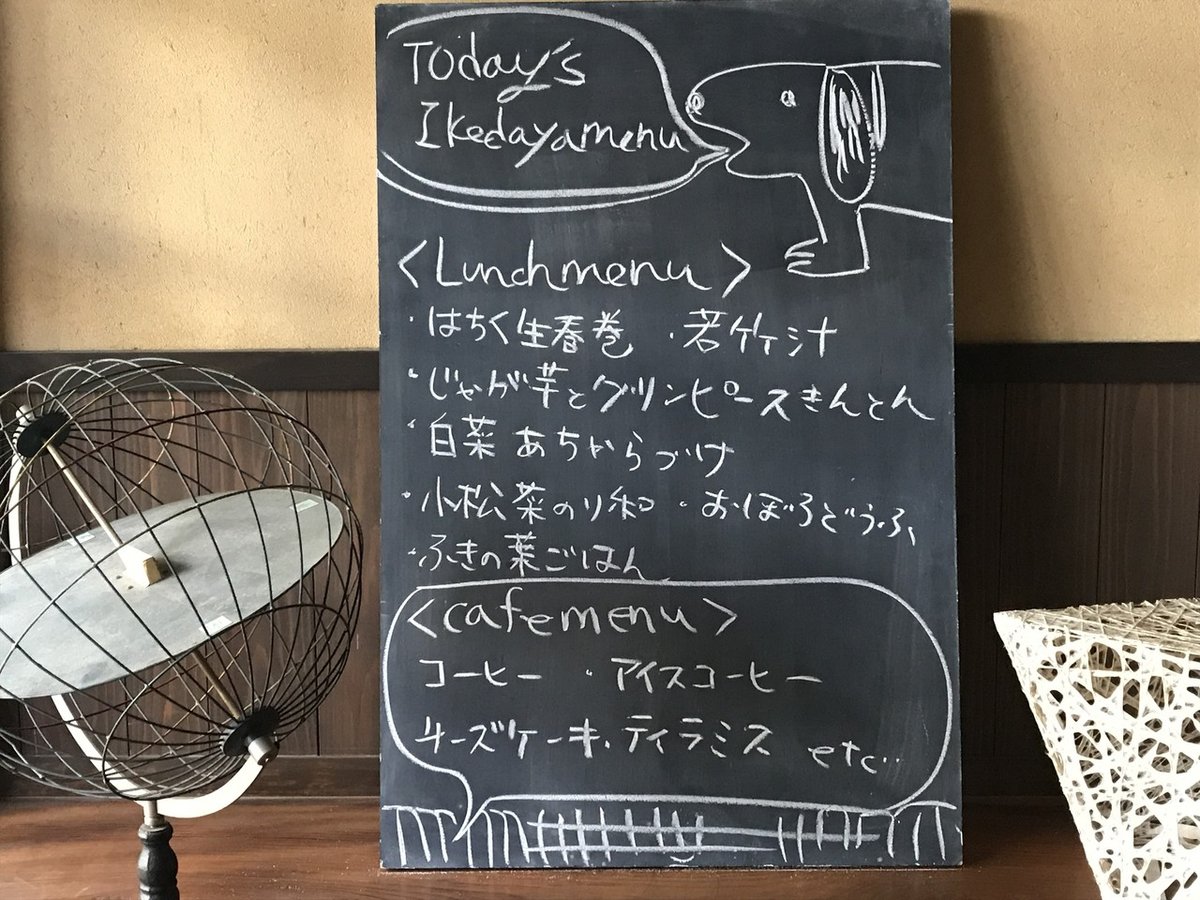 Today's
Ikedayamenu
<Lunchmenu>
・はちく生春巻 ・若竹汁
・じゃが芋とグリンピースきんとん
・白菜あちゃらづけ
・小松菜のり和 ・おぼろどうふ
・ふきの葉ごはん
<cafemenu>
コーヒー ・アイスコーヒー
チーズケーキ・ティラミス etc…